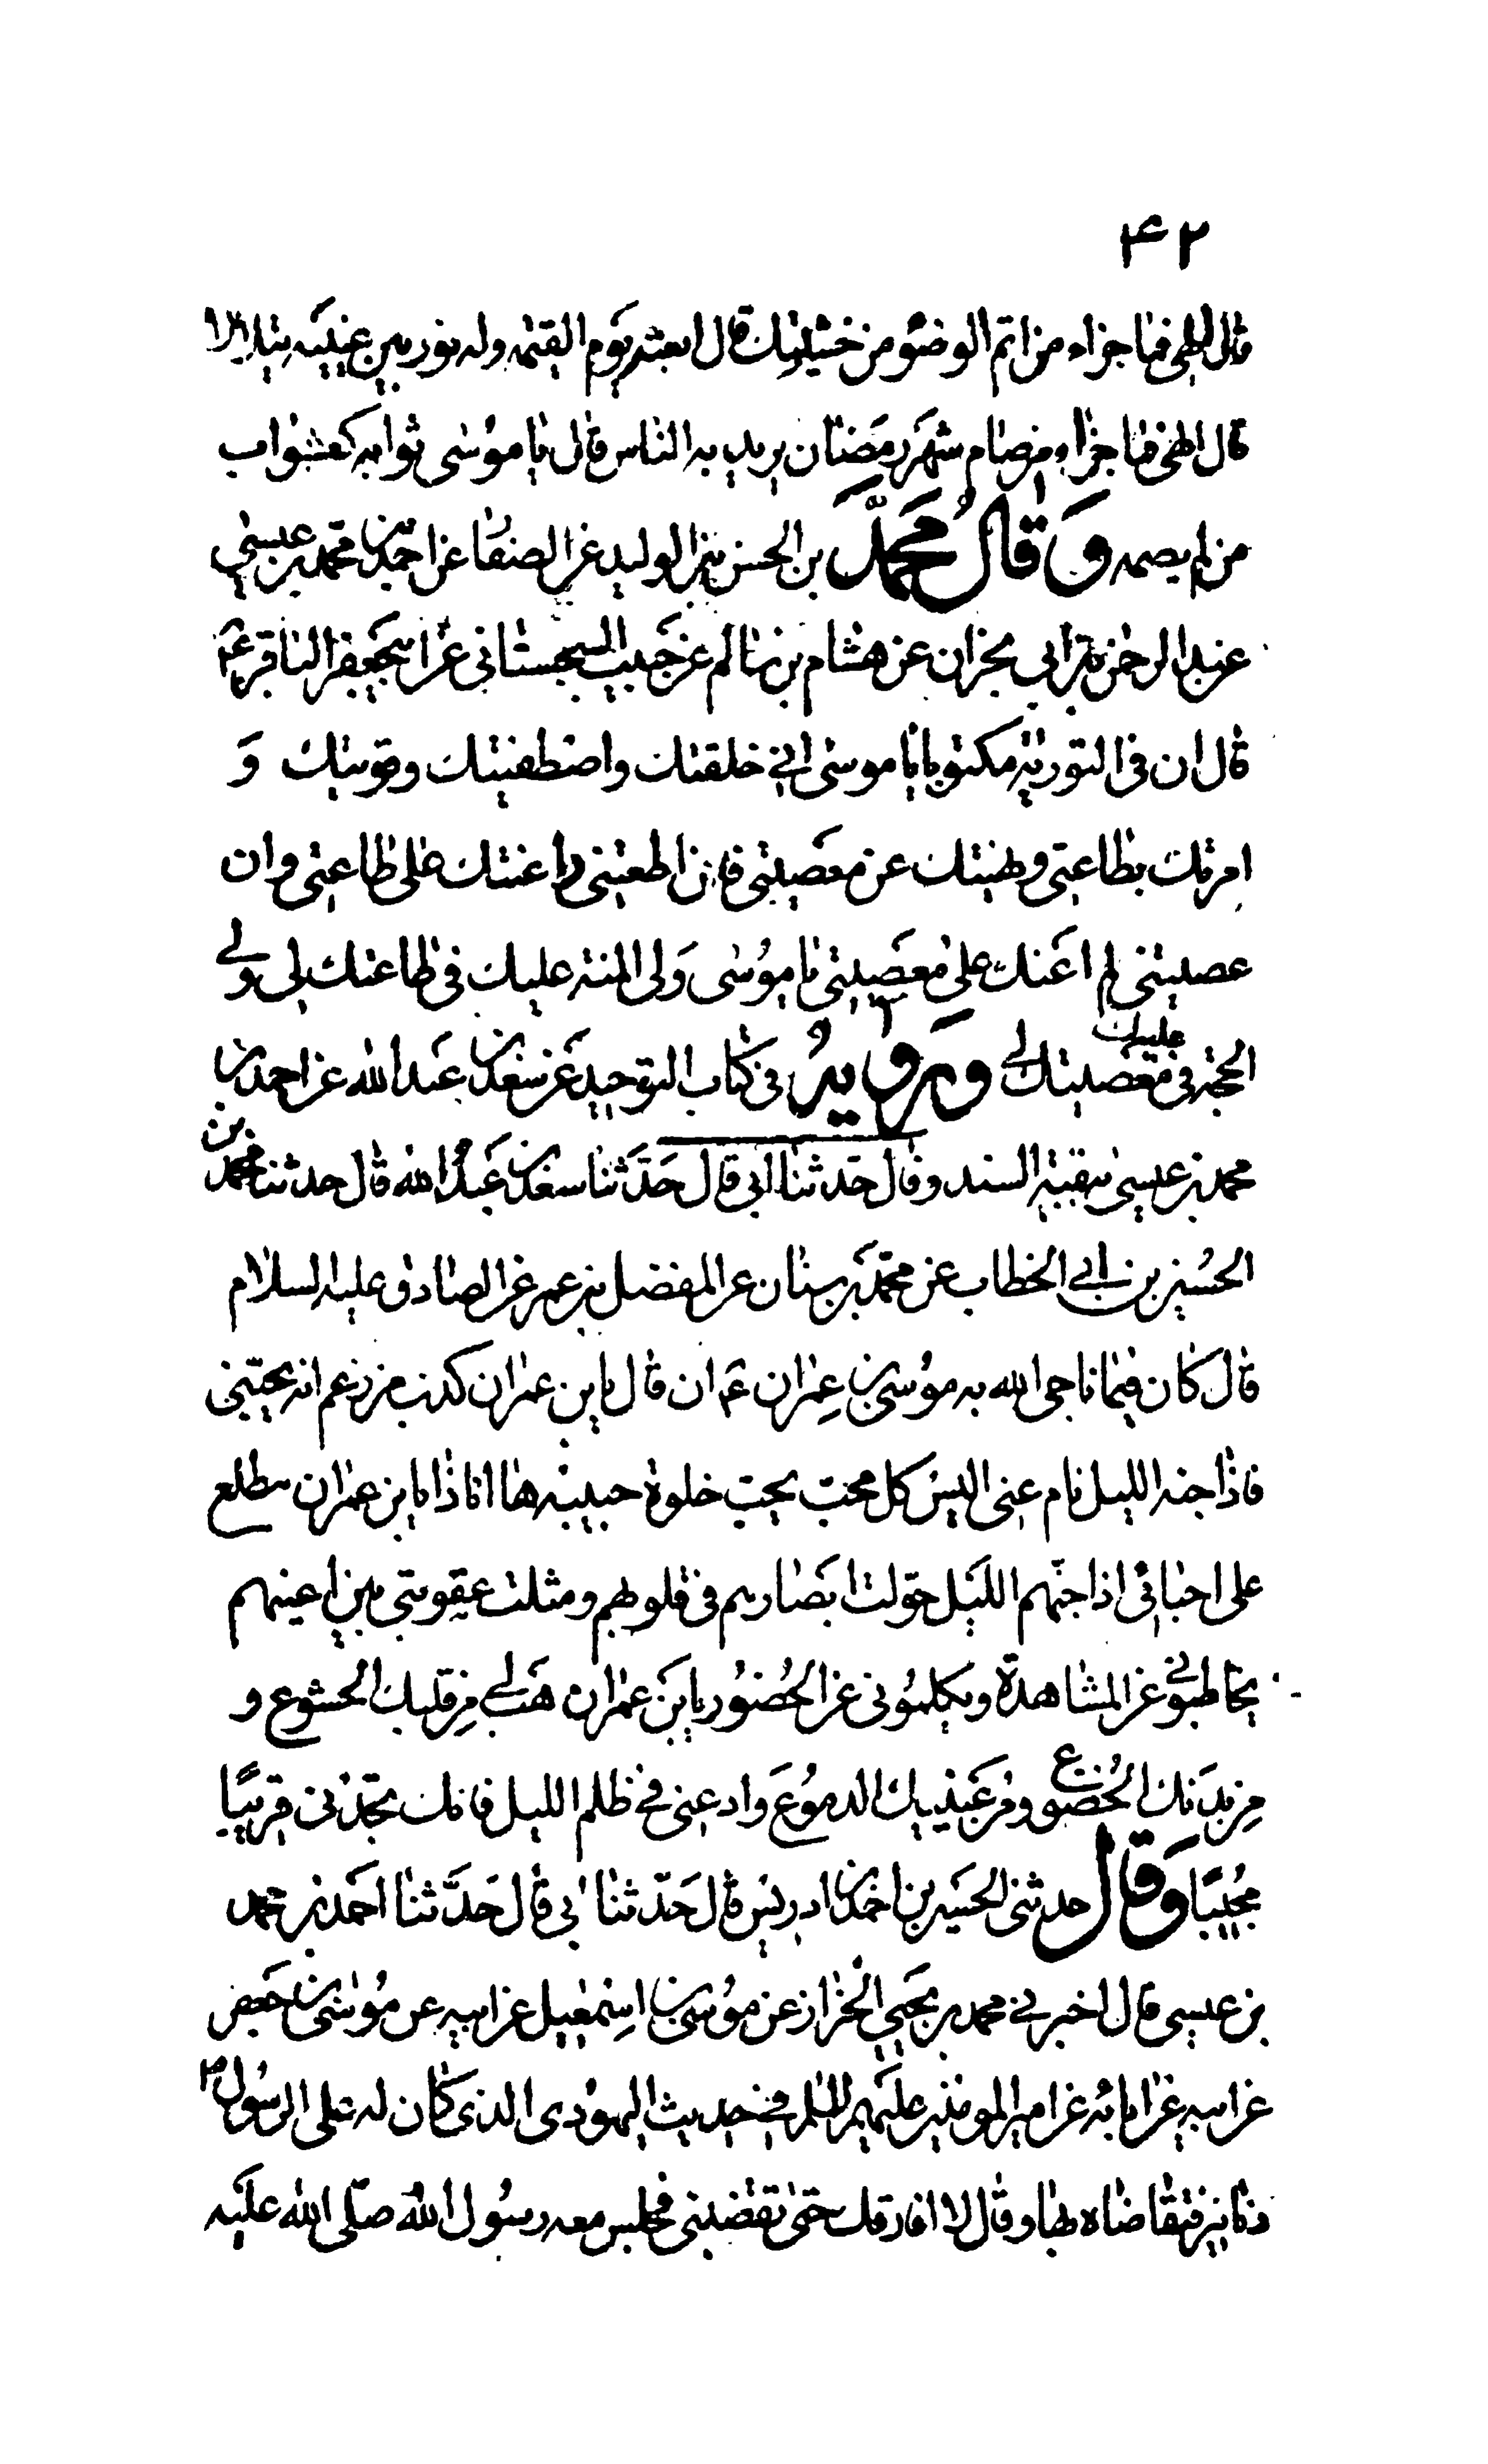 ۴۲
قال الهى فما جزاء من اتم الوضؤ من خشيتك قال ابعثه يوم القيمه وله نور بين عينيه يتلالا
قال الهى فما جزاء من صام شهر رمضان يريد به الناس قال يا موسى ثوابه كثواب
من لم يصمه وقال محمد بن الحسن بن الوليد عن الصفار عن احمد بن محمد بن عيسى عن
عبد الرحمن بن ابى نجران عن هشام بن سالم عن حبيب السجستانى عن ابيجعفر الباقر ع
قال ان فى التورية مكتوبا يا موسى انى خلقتك واصطفيتك وقويتك و
امرتك بطاعتى ونهيتك عن معصيتى فان اطعتنى اعنتك على طاعتى وان
عصيتنى لم اعنك على معصيتى يا موسى ولى المنة عليك فى طاعتك لى ولى
الحجة عليك فى معصيتك لى ورواه فى كتاب التوحيد عن سعد بن عبد الله عن احمد بن
محمد بن عيسى ببقية السند وقال حدثنا ابى قال حدثنا سعد بن عبد الله قال حدثنا محمد بن
الحسين بن ابى الخطاب عن محمد بن سنان عن المفضل بن عمر عن الصادق عليه السلام
قال كان فيما ناجى الله به موسى بن عمران ع ان قال يا بن عمران كذب من زعم انه يحبنى
فاذا جنه الليل نام عنى اليس كل محب يحب خلوة حبيبه ها انا ذا يا بن عمران مطلع
على احبائى اذا جنهم الليل حولت ابصارهم فى قلوبهم ومثلت عقوبتى بين اعينهم
يخاطبونى عن المشاهدة ويكلمونى عن الحضور يا بن عمران هب لى من قلبك الخشوع و
من بدنك الخضوع ومن عينيك الدموع وادعنى فى ظلم الليل فانك تجدنى قريبا
مجيبا وقال حدثنى الحسين بن احمد بن ادريس قال حدثنا ابى قال حدثنا احمد بن محمد
بن عيسى قال اخبرنى محمد بن يحيى الخزاز عن موسى بن اسمعيل عن ابيه عن موسى بن جعفر
عن ابيه عن ابائه عن امير المومنين عليهم السلم فى حديث اليهودى الذى كان له على الرسول ص
دنانير فتقاضاه بها وقال لا افارقك حتى تقضينى فجلس معه رسول الله صلى الله عليه